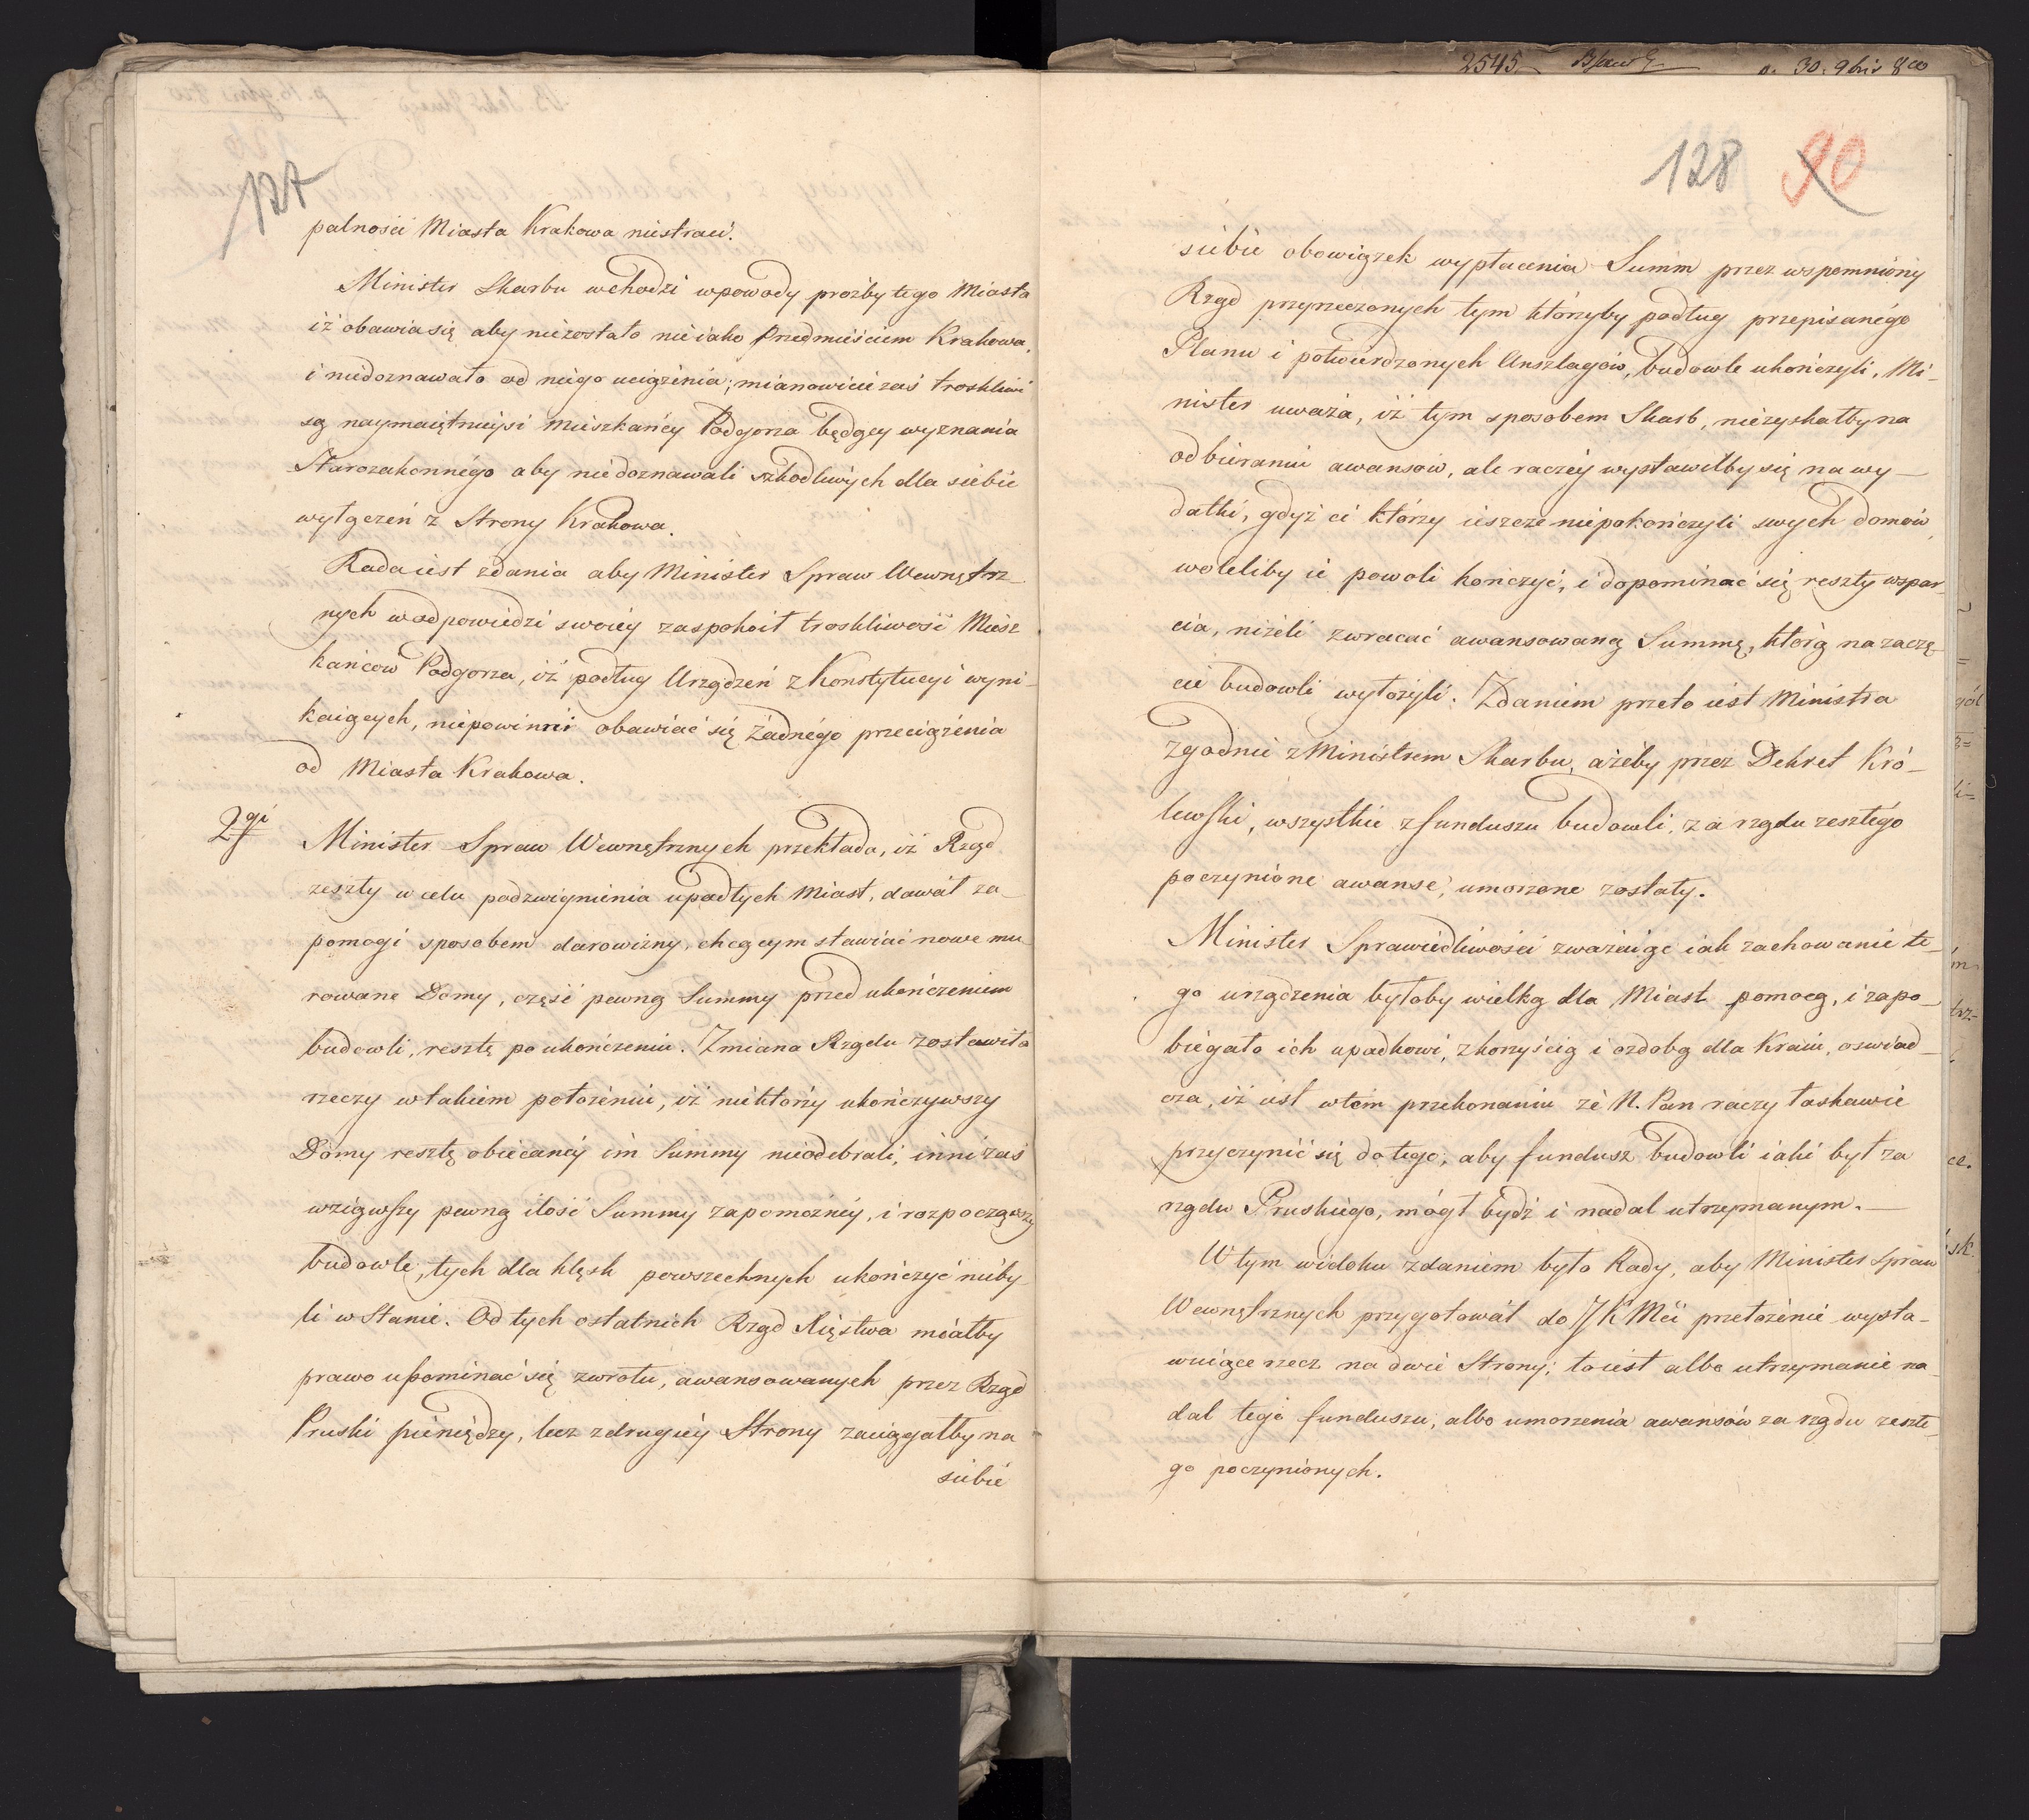 127
palnosci Miasta Krakowa niestracić.
Minister Skarbu wchodzi w powody prożby tego Miasta
iż obawia się aby niezostało nieiako Przedmieściem Krakowa,
i niedoznawało od niego uciążenia; mianowicie zaś troskliwi
są naymaiętnieysi Mieszkańcy Podgorza będący wyznania
Starozakonnégo aby niedoznawali szkodliwych dla siebie
wyłączeń z Strony Krakowa.
Rada iest zdania aby Minister Spraw Wewnętrz-
nych w odpowiedzi swoiey zaspokoił troskliwość Miesz
kańcow Podgorza, iż podług Urządzeń z Konstytucyi wyni-
kaiących, niepowinni obawiać się żadnégo przeciążenia
od Miasta Krakowa.
2gi Minister Spraw Wewnętrznych przekłada, iż Rząd
zeszły w celu podzwignienia upadłych Miast, dawał za-
pomogi sposobem darowizny, chcącym stawiać nowe mu-
rowane Domy, część pewną Summy przed ukończeniem
budowli, resztę po ukończeniu. Zmiana Rządu zostawiła
rzeczy w takiem położeniu, iż niektórzy ukończywszy
Domy resztę obiecaney im Summy nieodebrali, inni zaś
wziąwszy pewną ilość Summy zapomożney, i rozpocząwszy
budowle, tych dla klęsk powszechnych ukończyć nieby-
li w Stanie. Od tych ostatnich Rząd Xięstwa miałby
prawo upominać się zwrotu, awansowanych przez Rząd
Pruski pieniędzy, lecz z drugiey Strony zaciągałby na
siebie
2545
a. 30. 9bris 8oo
128 90
siebie obowiązek wypłacenia Summ przez wspomniony
Rząd przyrzeczonych tym którzyby podług przepisanégo
Planu i potwierdzonych Anszlagów, budowle ukończyli. Mi-
nister uważa, iż tym sposobem Skarb, niezyskałby na
odbieraniu awansów, ale raczéy wystawiłby się na wy-
datki, gdyż ci którzy ieszcze niepokończyli swych domów,
woleliby ie powoli kończyć, i dopominać się reszty wspar-
cia, niżeli zwracać awansowaną Summę, którą na zaczę-
cie budowli wyłożyli. Zdaniem przeto iest Ministra
zgodnie z Ministrem Skarbu, ażeby przez Dekret Kró-
lewski, wszystkie z funduszu budowli, za rządu zeszłégo
poczynione awanse, umorzone zostały.
Minister Sprawiedliwości zważaiąc iak zachowanie te-
go urządzenia byłoby wielką dla Miast pomocą, i zapo-
biegało ich upadkowi, z korzyścią i ozdobą dla Kraiu, oswiad-
cza, iż iest w tém przekonaniu że N. Pan raczy łaskawie
przyczynić się do tego, aby fundusz budowli iaki był za
rządu Pruskiégo, mógł bydź i nadal utrzymanym. —
W tym widoku zdaniem było Rady, aby Minister Spraw
Wewnętrznych przygotował do JKMći przełożenie wysta-
wuiące rzecz na dwie Strony; to iest albo utrzymanie na-
dal tego funduszu, albo umorzenia awansów za rządu zeszłe-
go poczynionych.